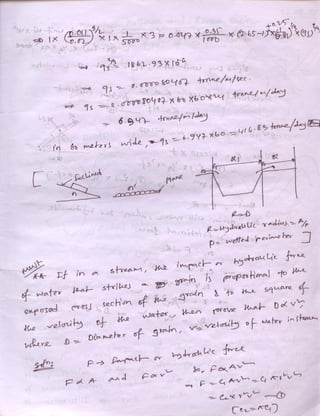 ⇒ 1 × (0.041/0.02)^3/2 × 1 × 1/5000 × 3 = 0.047 × 0.35/1000 × (2.65-1)
⇒ qs = 0.000080407 tonne/m/sec.
⇒ qs = 0.000080407 × 60 × 60 × 24 tonne/m/day
= 6.947 tonne/m/day
in 60 meters wide ⇒ qs = 6.947 × 60 = 416.83 tonne/day
Inclined
Plane
n
n'
R
R ≃ D
R = Hydraulic radius = A/P
P = wetted perimeter ]
If in a stream, the impact or hydraulic force
of water that strikes a grain is proportional to the
exposed cross section of the grain & to the square of
the velocity of the water, then prove that D ∝ v²,
where D = Diameter of grain, v = velocity of water in stream
Soln:
F → Impact or hydraulic force
F ∝ A and F ∝ v² ∴ F ∝ Av²